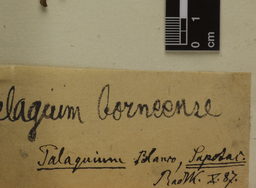 0 1
cm
elaquium borneense
Talaquium Blanco, Sapotac.
Radlk. X. 87.